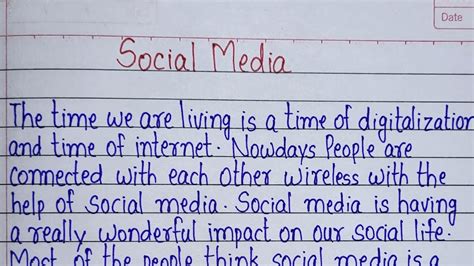 Date
Social Media
The time we are living is a time of digitalization
and time of internet. Nowdays People are
connected with each other wireless with the
help of social media. Social media is having
a really wonderful impact on our social life.
Most of the people think social media is a